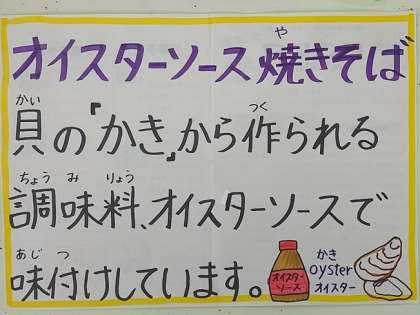 や
オイスターソース焼きそば
かい つく
貝の「かき」から作られる
ちょう み りょう
調味料、オイスターソースで
あじ つ
味付けしています。
オイスター
ソース
かき
oyster
オイスター